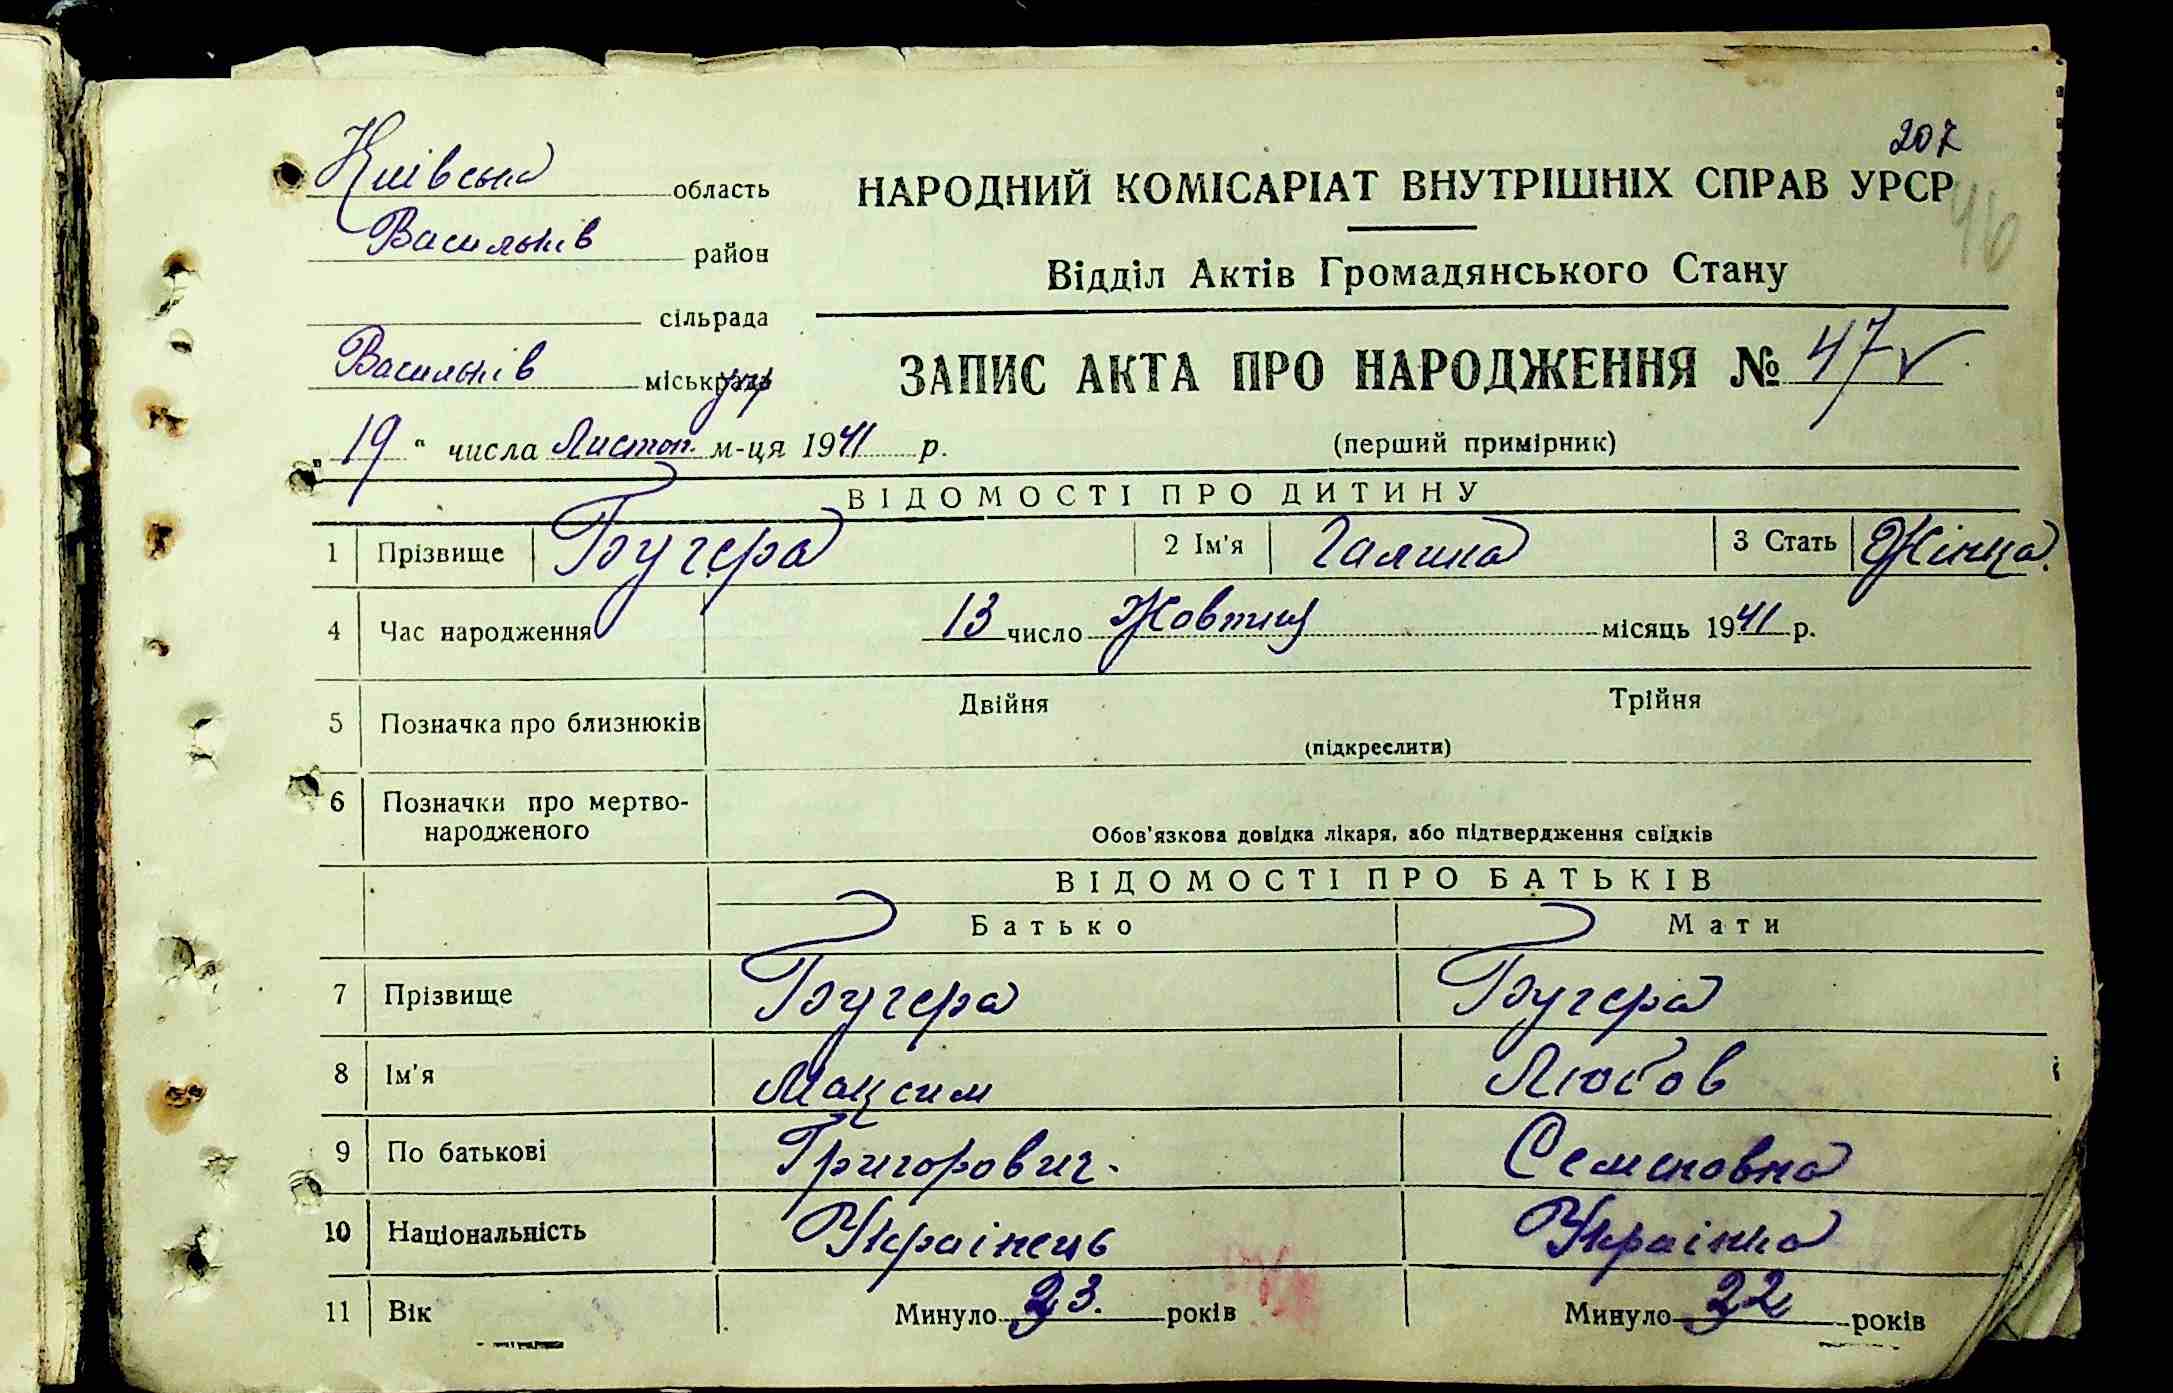 207
Київська область
НАРОДНИЙ КОМІСАРІАТ ВНУТРІШНІХ СПРАВ УРСР
46
Васильків район
Відділ Актів Громадянського Стану
сільрада
Васильків міськрада
ЗАПИС АКТА ПРО НАРОДЖЕННЯ № 47
„19" числа Листоп. м-ця 1941 р.
(перший примірник)
ВІДОМОСТІ ПРО ДИТИНУ
1 Прізвище Бугера 2 Ім'я Галина 3 Стать Жіноча
4 Час народження 13 число Жовтня місяць 1941 р.
5 Позначка про близнюків Двійня Трійня
(підкреслити)
6 Позначки про мертво-
народженого
Обов'язкова довідка лікаря, або підтвердження свідків
ВІДОМОСТІ ПРО БАТЬКІВ
Батько Мати
7 Прізвище Бугера Бугера
8 Ім'я Максим Любов
9 По батькові Григорович. Семеновна
10 Національність Українець Українка
11 Вік Минуло 23. років Минуло 22 років